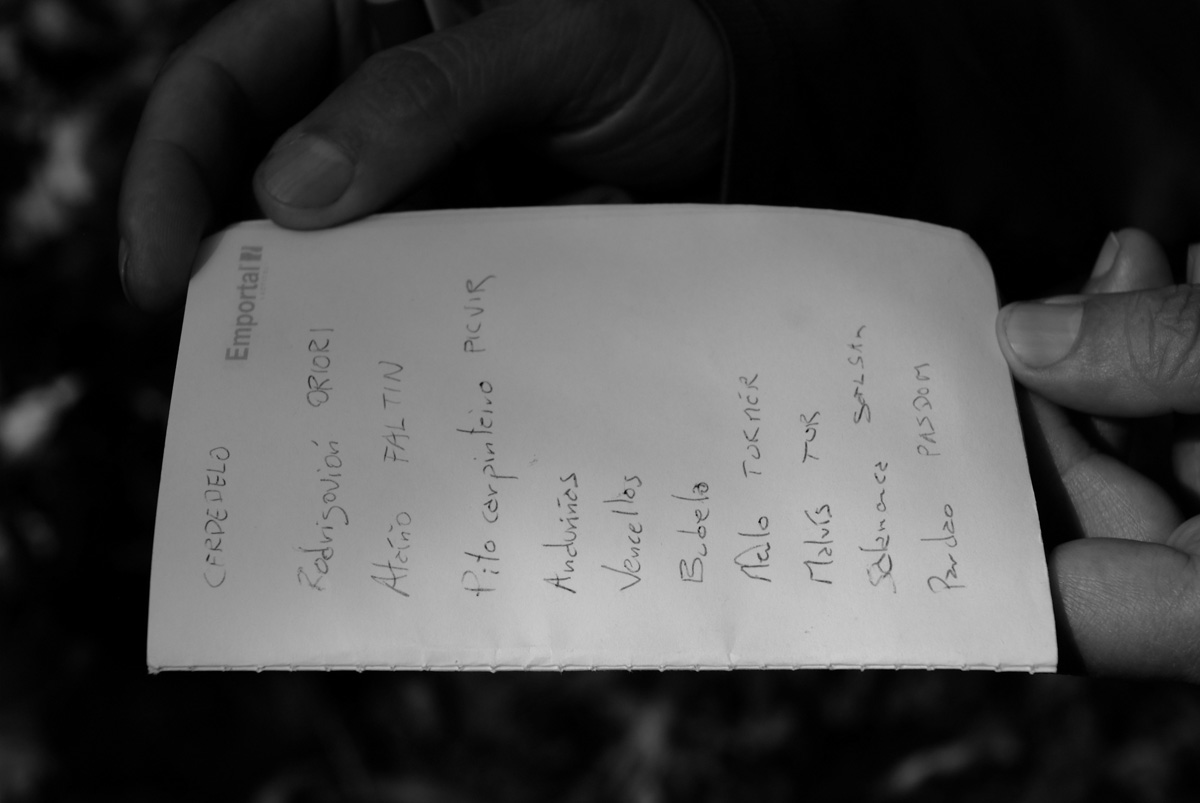 Emportal
CERDEDELO
Rodrigovión ORIORI
Ateño FALTIN
Pito carpinteiro PICVIR
Anduriñas
Vencellos
Bubela
Merlo TURMER
Malvís TUR
Salamanca SALSAL
Pardao PASDOM